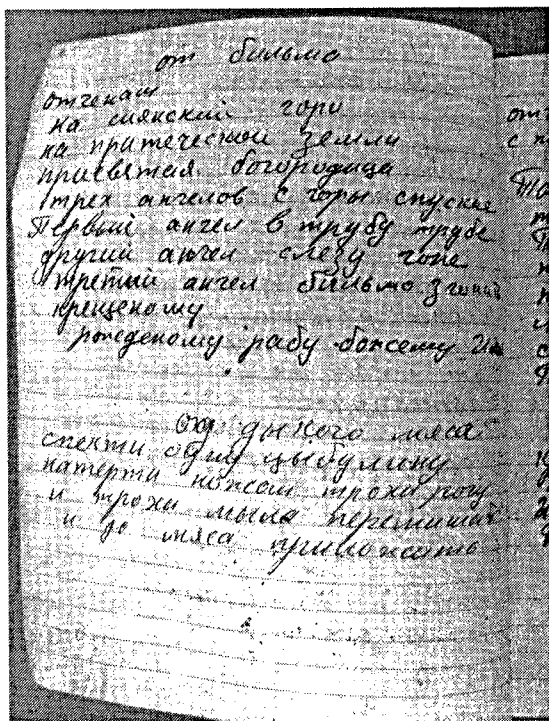 от бильмо
отченаш
на сиянский гори
на притеческой земли
присвятая богородица
трех ангелов с горы спускае
Первый ангел в трубу трубе
другий ангел слезу гоне
третий ангел бильмо згинай
крещеному
рожеденому рабу божему Им
од дыкого мяса
спекти одну цыбулину
натерти ножом троха рогу
и троха мыла перемишать
и до мяса приложить